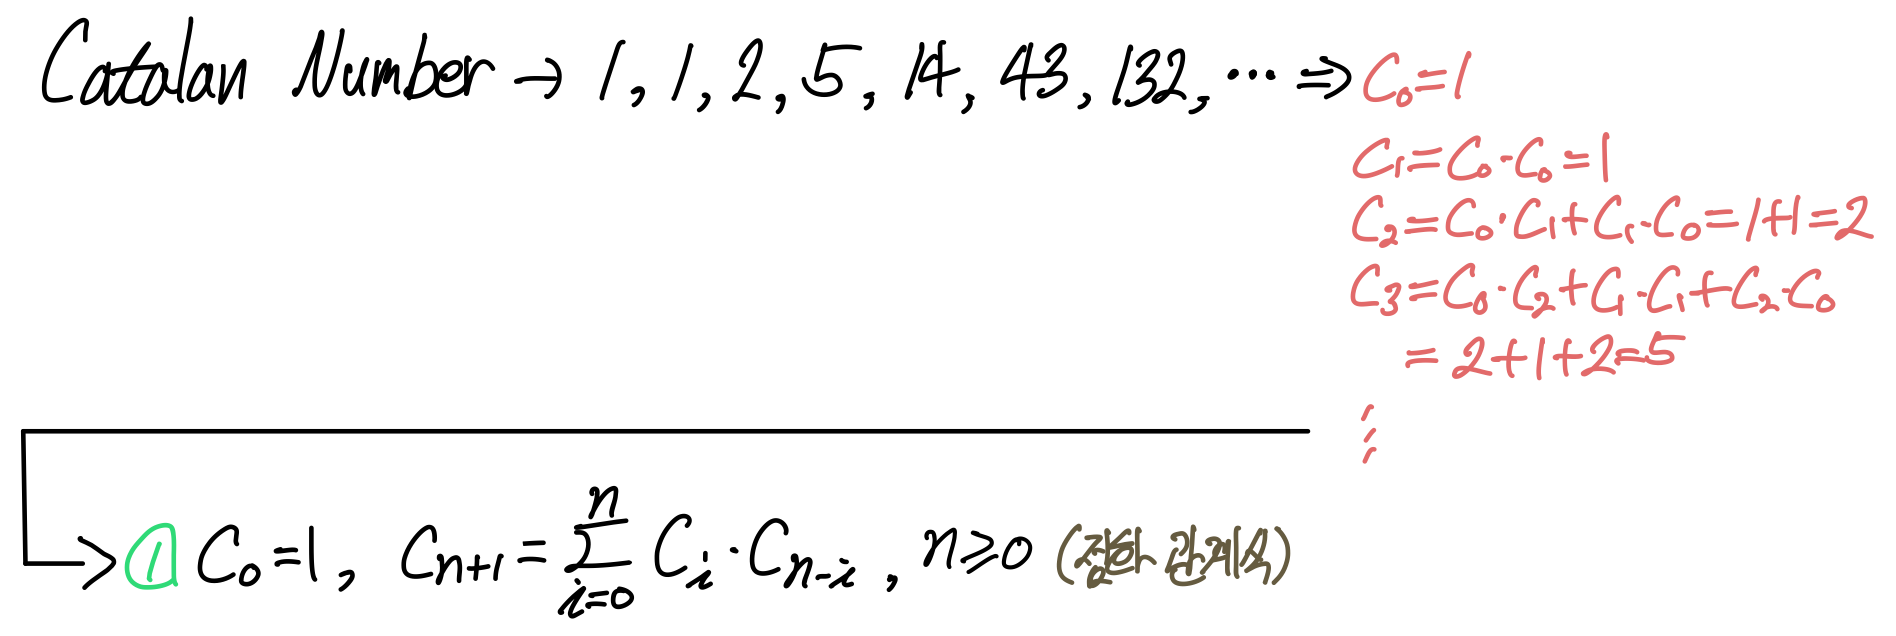 Catalan Number → 1, 1, 2, 5, 14, 43, 132, ... ⇒ C₀=1
C₁=C₀·C₀=1
C₂=C₀·C₁+C₁·C₀=1+1=2
C₃=C₀·C₂+C₁·C₁+C₂·C₀
=2+1+2=5
⋮
① C₀=1, Cₙ₊₁=∑ⁿᵢ₌₀ Cᵢ·Cₙ₋ᵢ, n≥0